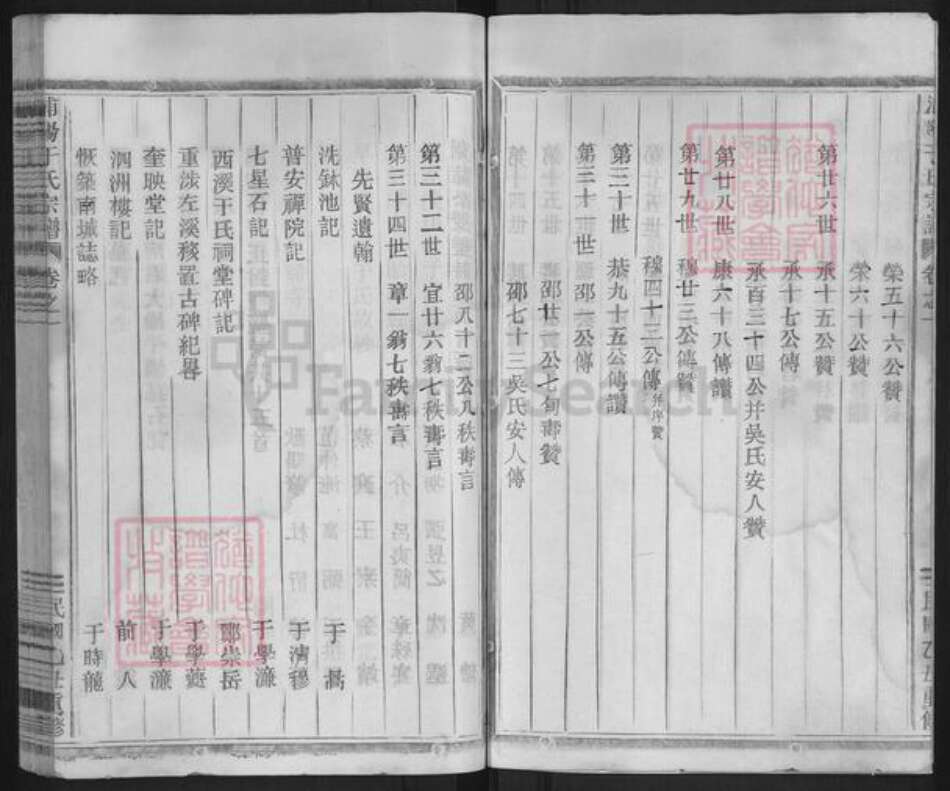 榮五十六公贊
榮六十公贊
第廿六世 承十五公贊
承十七公傳
承百三十四公并吳氏安人贊
第廿八世 康六十八傳讚
第廿九世 穆廿三公傳贊
穆四十三公傳并序贊
第三十世 恭九十五公傳讚
第三十一世 邵 公傳
邵廿一公七旬壽贊
邵七十三吳氏安人傳
邵八十二公八秩壽言
第三十二世 宜廿六翁七秩壽言
第三十四世 章一翁七秩壽言
先賢遺翰
洗鉢池記 于
普安禪院記 于清穆
七星石記 于學濂
西溪于氏祠堂碑記 鄭崇岳
重涉左溪移置古碑紀畧 于學
奎映堂記 于學濂
泗洲樓記 前人
恢築南城誌略 于時龍
浦陽于氏宗譜 卷之一 民國乙丑重修
FamilySearch